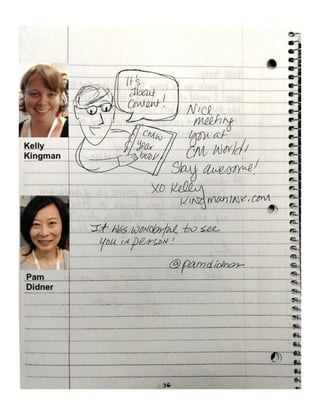 It's
about
content!
CMW
year
book
Nice
meeting
you at
CM World!
Stay awesome!
XO Kelly
KINGMANINK.COM
Kelly
Kingman
It was wonderful to see
you in person!
@pamdidner
Pam
Didner
36